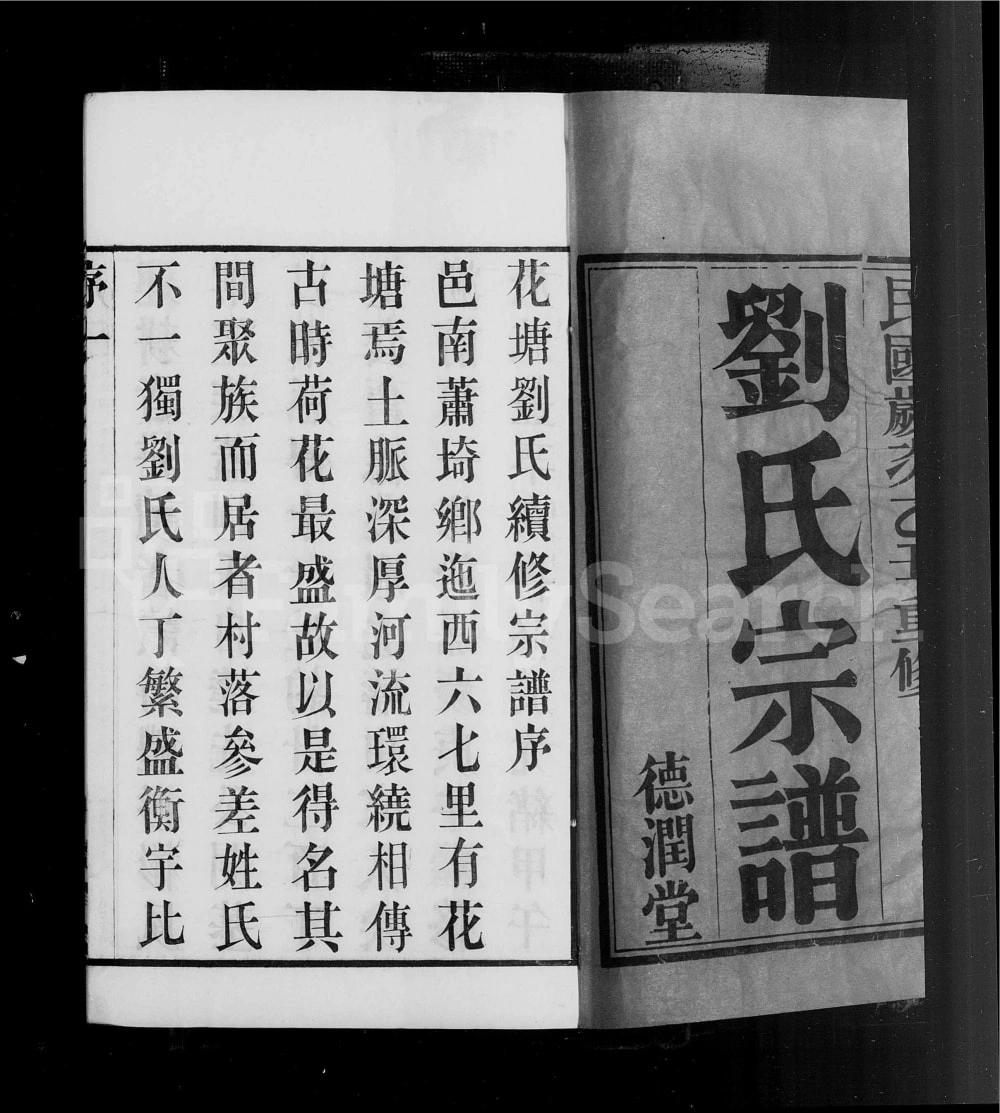 民國歲次乙丑重修
劉氏宗譜
德潤堂
花塘劉氏續修宗譜序
邑南蕭埼鄉迤西六七里有花
塘焉土脈深厚河流環繞相傳
古時荷花最盛故以是得名其
間聚族而居者村落參差姓氏
不一獨劉氏人丁繁盛衡宇比
序一
FamilySearch